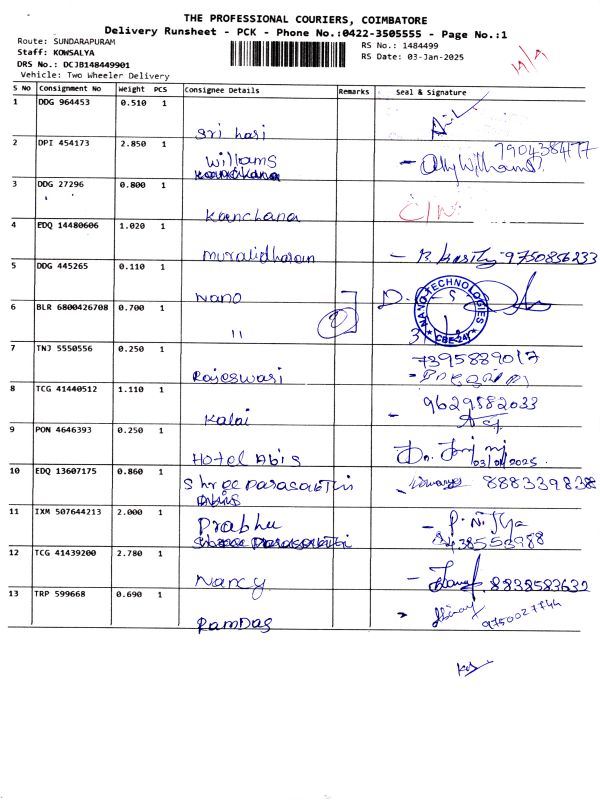 THE PROFESSIONAL COURIERS, COIMBATORE
Delivery Runsheet - PCK - Phone No.:0422-3505555 - Page No.:1
Route: SUNDARAPURAM
RS No.: 1484499
Staff: KOWSALYA
RS Date: 03-Jan-2025
DRS No.: DCJB148449901
Vehicle: Two Wheeler Delivery
S No Consignment No Weight PCS Consignee Details Remarks Seal & Signature
1 DDG 964453 0.510 1
Sri hari
2 DPI 454173 2.850 1
Williams
3 DDG 27296 0.800 1
Kanchana
4 EDQ 14480606 1.020 1
muralidharan
9750856233
5 DDG 445265 0.110 1
Nano
NANO TECHNOLOGIES
CBE-24
6 BLR 6800426708 0.700 1
"
7 TNJ 5550556 0.250 1
7395889017
Rajeswari
8 TCG 41440512 1.110 1
9629582033
Kalai
9 PON 4646393 0.250 1
Hotel Abis
03/01/2025
10 EDQ 13607175 0.860 1
Shree Parasakthi
888339838
11 IXM 507644213 2.000 1
Prabhu
P. Nitya
12 TCG 41439200 2.780 1
Nancy
8838583632
13 TRP 599668 0.690 1
Ramdas